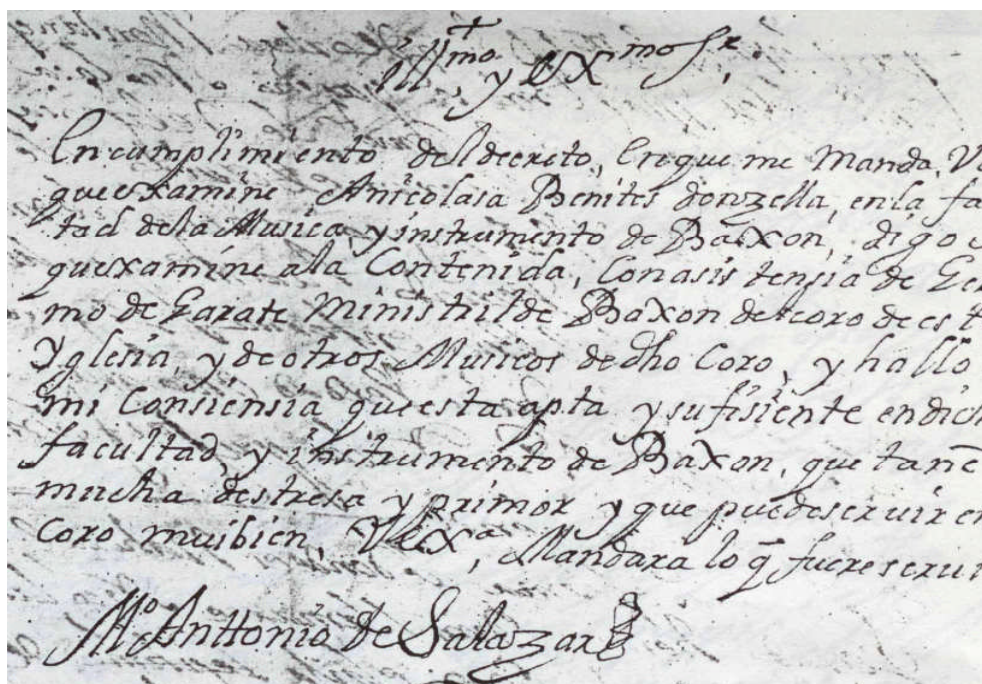 Ill.mo y Exmo Sr.
En cumplimiento del decreto, En que me Manda, V
que examine Anicolasa Benites donzella, en la fa
tad de la Musica, y instrumento de Baxon, digo
que examine a la Contenida, Con asistensia de Ge
mo de Garate Ministril de Baxon del coro de est
Yglesia, y de otros Musicos de dho Coro, y hallo
mi Consiensia que esta apta y sufisiente en dich
facultad, y instrumento de Baxon, que tañe
mucha destresa y primor y que puede servir en
Coro mui bien, VExa, Mandara lo q̃ fuere servi
Mo Anttonio de Salazar